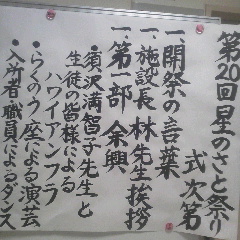 第20回 星のさと祭り
式次第
一、開祭の言葉
一、施設長 林先生挨拶
一、第一部 余興
・須沢満智子先生と
生徒の皆様による
ハワイアンフラ
・らくのう座による演芸
・入所者・職員によるダンス